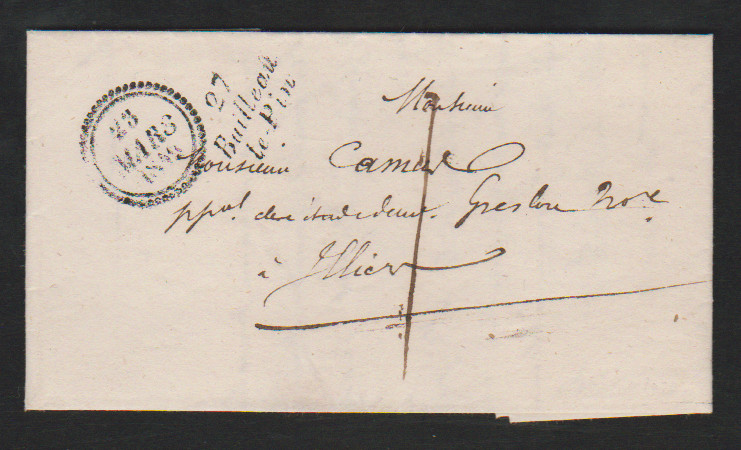 23
MARS
27
Bailleau
le Pin
Monsieur
Monsieur Camus
ppal clerc
Greslou Nore
à Illiers